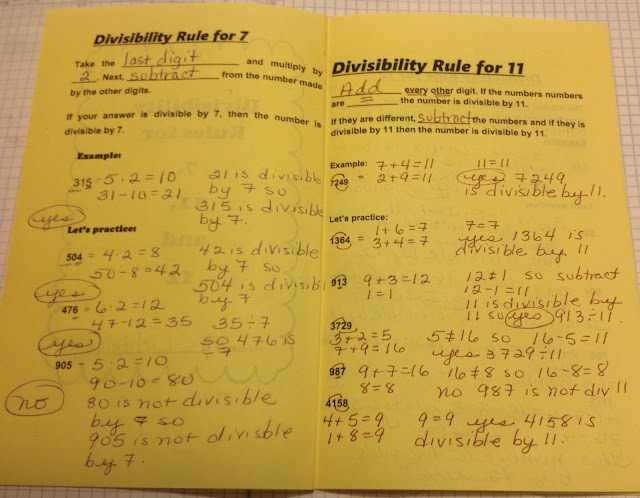 Divisibility Rule for 7
Take the last digit and multiply by
2. Next, subtract from the number made
by the other digits.
If your answer is divisible by 7, then the number is
divisible by 7.
Example:
315 = 5·2=10 21 is divisible
31-10=21 by 7 so
yes 315 is divisible
by 7.
Let's practice:
504 = 4·2=8 42 is divisible
50-8=42 by 7 so
yes 504 is divisibl
by 7
476 = 6·2=12
47-12=35 35÷7
yes so 476 is
÷7
905 = 5·2=10
90-10=80
no 80 is not divisible
by 7 so
905 is not divisble
by 7.
Divisibility Rule for 11
Add every other digit. If the numbers numbers
are = the number is divisible by 11.
If they are different, subtract the numbers and if they is
divisible by 11 then the number is divisible by 11.
Example: 7+4=11 11=11
7249 = 2+9=11 yes 7249
is divisible by 11.
Let's practice:
1+6=7 7=7
1364 = 3+4=7 yes 1364 is
divisible by 11
913 9+3=12 12≠1 so subtract
1=1 12-1=11
11 is divisible by
11 so yes 913÷11.
3729
3+2=5 5≠16 so 16-5=11
7+9=16 yes 3729÷11
987 9+7=16 16≠8 so 16-8=8
8=8 no 987 is not div 11
4158
4+5=9 9=9 yes 4158 is
1+8=9 divisible by 11.